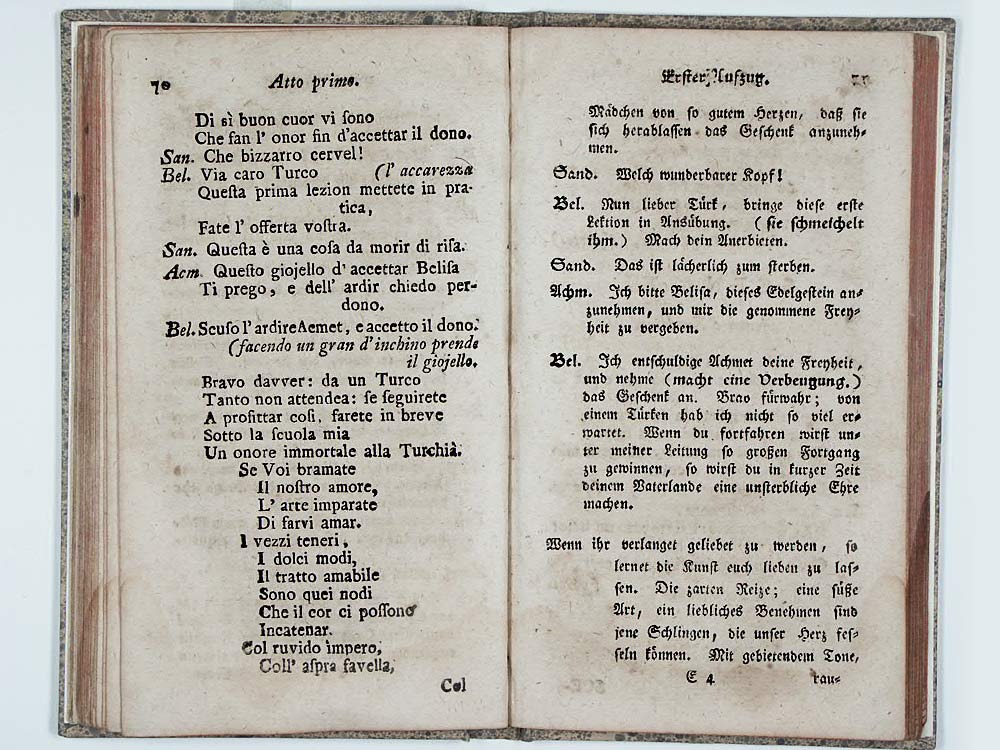 70
Atto primo.
Di sì buon cuor vi ſono
Che fan l' onor fin d'accettar il dono.
San. Che bizzarro cervel!
Bel. Via caro Turco (l' accarezza
Queſta prima lezion mettete in pra-
tica,
Fate l' offerta voſtra.
San. Queſta è una coſa da morir di riſa.
Acm. Queſto giojello d' accettar Beliſa
Ti prego, e dell' ardir chiedo per-
dono.
Bel. Scuſo l' ardire Acmet, e accetto il dono.
(facendo un gran d'inchino prende
il giojello.
Bravo davver: da un Turco
Tanto non attendea: ſe ſeguirete
A profittar coſi, farete in breve
Sotto la ſcuola mia
Un onore immortale alla Turchià.
Se Voi bramate
Il noſtro amore,
L' arte imparate
Di farvi amar.
I vezzi teneri,
I dolci modi,
Il tratto amabile
Sono quei nodi
Che il cor ci poſſono
Incatenar.
Col ruvido impero,
Coll' aſpra favella,
Col
Erſter Aufzug.
71
Mädchen von ſo gutem Herzen, daß ſie
ſich herablaſſen das Geſchenk anzuneh-
men.
Sand. Welch wunderbarer Kopf!
Bel. Nun lieber Türk, bringe dieſe erſte
Lektion in Ausübung. (ſie ſchmeichelt
ihm.) Mach dein Anerbieten.
Sand. Das iſt lächerlich zum ſterben.
Achm. Ich bitte Beliſa, dieſes Edelgeſtein an-
zunehmen, und mir die genommene Frey-
heit zu vergeben.
Bel. Ich entſchuldige Achmet deine Freyheit,
und nehme (macht eine Verbeugung.)
das Geſchenk an. Brav fürwahr; von
einem Türken hab ich nicht ſo viel er-
wartet. Wenn du fortfahren wirſt un-
ter meiner Leitung ſo großen Fortgang
zu gewinnen, ſo wirſt du in kurzer Zeit
deinem Vaterlande eine unſterbliche Ehre
machen.
Wenn ihr verlanget geliebet zu werden, ſo
lernet die Kunſt euch lieben zu laſ-
ſen. Die zarten Reize; eine ſüße
Art, ein liebliches Benehmen ſind
jene Schlingen, die unſer Herz feſ-
ſeln können. Mit gebietendem Tone,
E 4
rau-